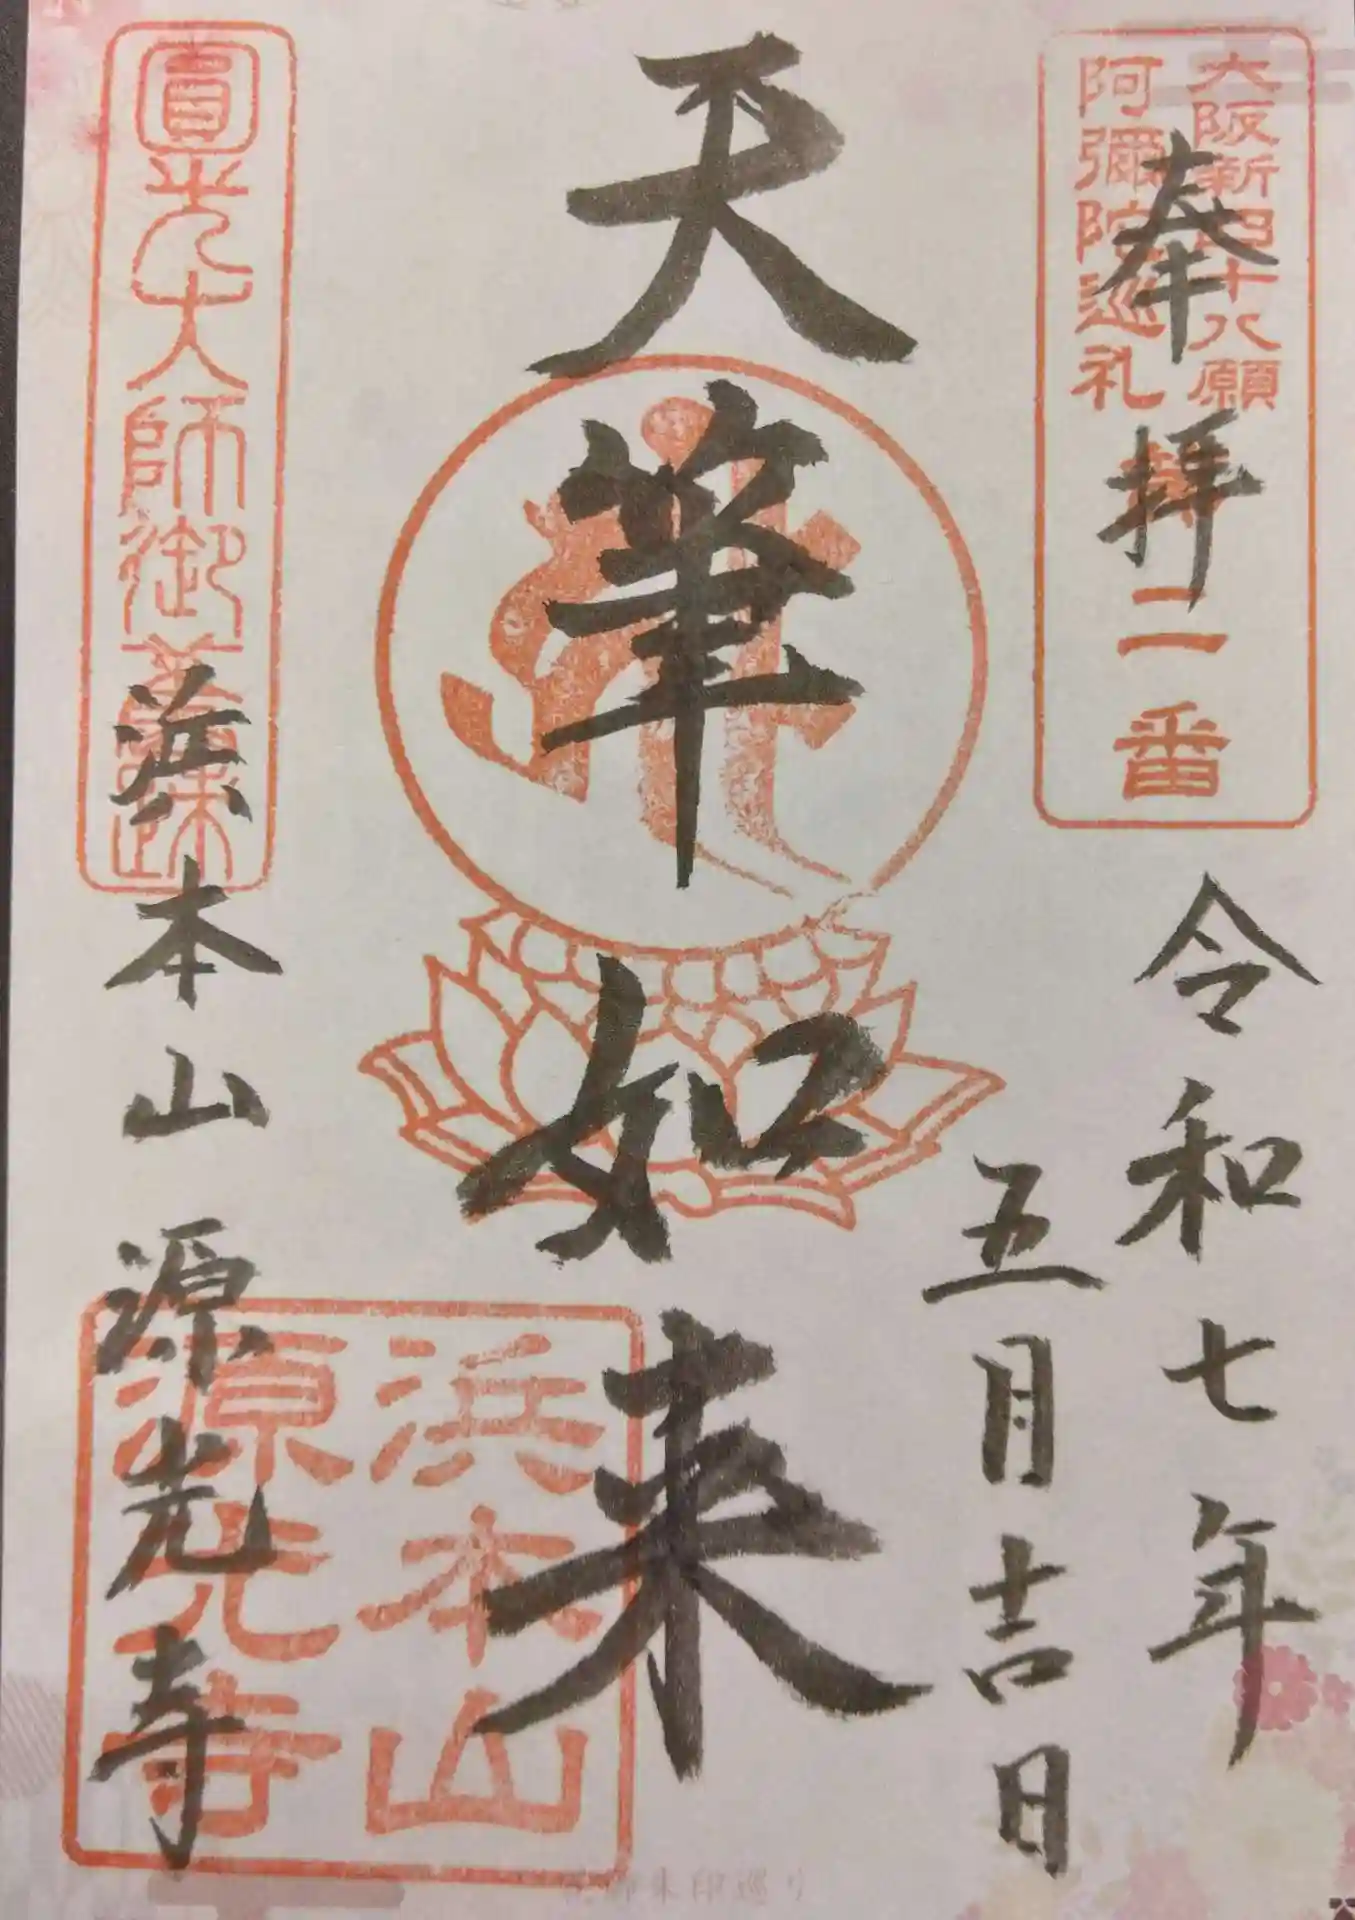 大阪新四十八願
阿彌陀巡礼
第二番
奉拝
令和七年
五月吉日
天筆如来
圓光大師御舊跡
浜本山源光寺
浜本山
源光寺
御朱印巡り